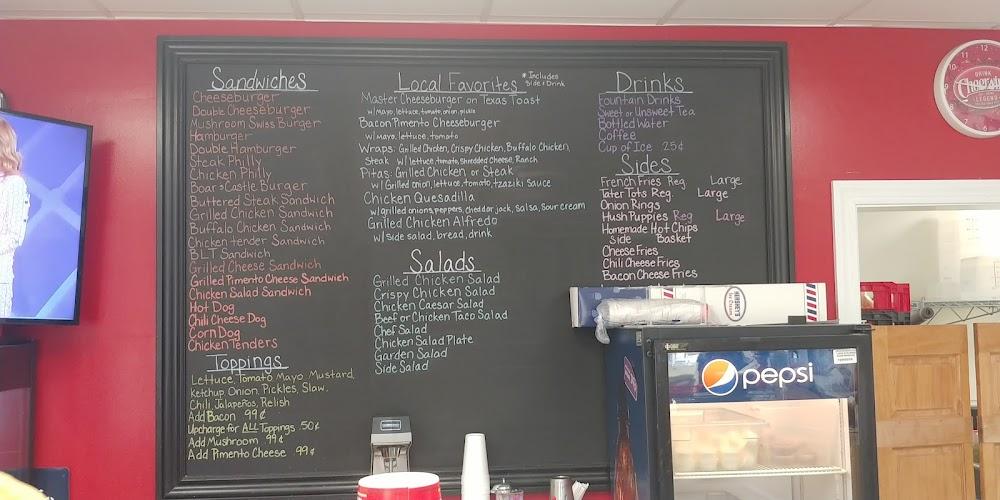 Sandwiches
Cheeseburger
Double Cheeseburger
Mushroom Swiss Burger
Hamburger
Double Hamburger
Steak Philly
Chicken Philly
Boar's Castle Burger
Buttered Steak Sandwich
Grilled Chicken Sandwich
Buffalo Chicken Sandwich
Chicken tender Sandwich
BLT Sandwich
Grilled Cheese Sandwich
Grilled Pimento Cheese Sandwich
Chicken Salad Sandwich
Hot Dog
Chili Cheese Dog
Corn Dog
Chicken Tenders
Toppings
Lettuce, Tomato, Mayo, Mustard,
Ketchup, Onion, Pickles, Slaw,
Chili, Jalapeños, Relish
Add Bacon .99¢
Upcharge for ALL Toppings .50¢
Add Mushroom .99¢
Add Pimento Cheese .99¢
Local Favorites
*Includes
Side + Drink
Master Cheeseburger on Texas Toast
w/mayo, lettuce, tomato, onion, pickle
Bacon Pimento Cheeseburger
w/mayo, lettuce, tomato
Wraps: Grilled Chicken, Crispy Chicken, Buffalo Chicken,
Steak w/ lettuce, tomato, Shredded Cheese, Ranch
Pitas: Grilled Chicken or Steak
w/ Grilled onion, lettuce, tomato, tzaziki sauce
Chicken Quesadilla
w/grilled onions, peppers, cheddar jack, salsa, sour cream
Grilled Chicken Alfredo
w/ side salad, bread, drink
Salads
Grilled Chicken Salad
Crispy Chicken Salad
Chicken Caesar Salad
Beef or Chicken Taco Salad
Chef Salad
Chicken Salad Plate
Garden Salad
Side Salad
Drinks
Fountain Drinks
Sweet or Unsweet Tea
Bottled Water
Coffee
Cup of Ice .25¢
Sides
French Fries Reg. Large
Tater Tots Reg. Large
Onion Rings
Hush Puppies Reg Large
Homemade Hot Chips
Side Basket
Cheese Fries
Chili Cheese Fries
Bacon Cheese Fries
DRINK
Cheerwine
LEGEND
10
11
12
pepsi